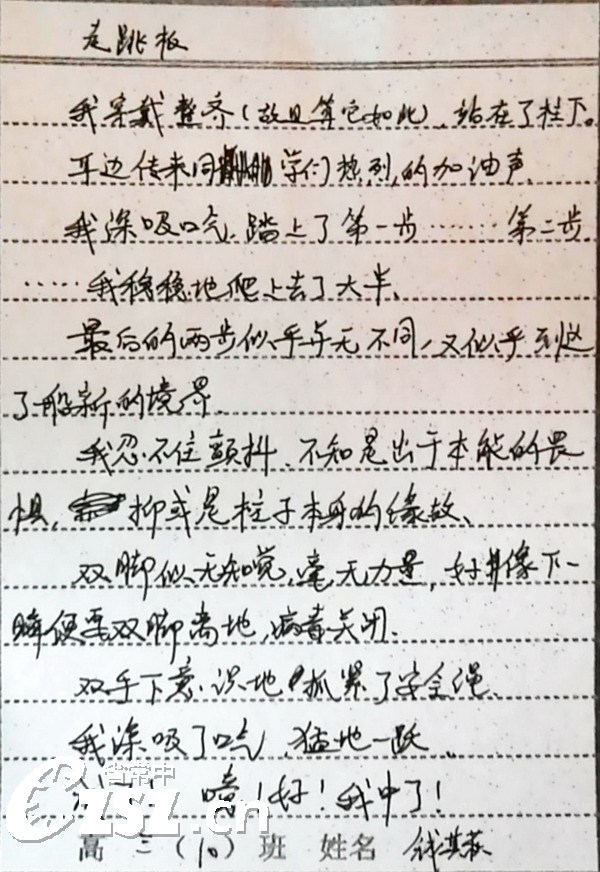 走跳板
我穿戴整齐(故且算它如此),站在了柱下。
耳边传来同学们热烈的加油声.
我深吸口气,踏上了第一步……第二步
……我稳稳地爬上去了大半、
最后的两步似乎与无不同,又似乎到达
了一般新的境界.
我忍不住颤抖、不知是出于本能的畏
惧, 抑或是柱子本身的缘故、
双脚似无知觉,毫无力量,好像下一
瞬便要双脚离地,病毒关闭.
双手下意识地抓紧了安全绳.
我深吸了口气,猛地一跃、
嘻!好!我中了!
省常中
CZSLSL.cn
高三(10)班 姓名